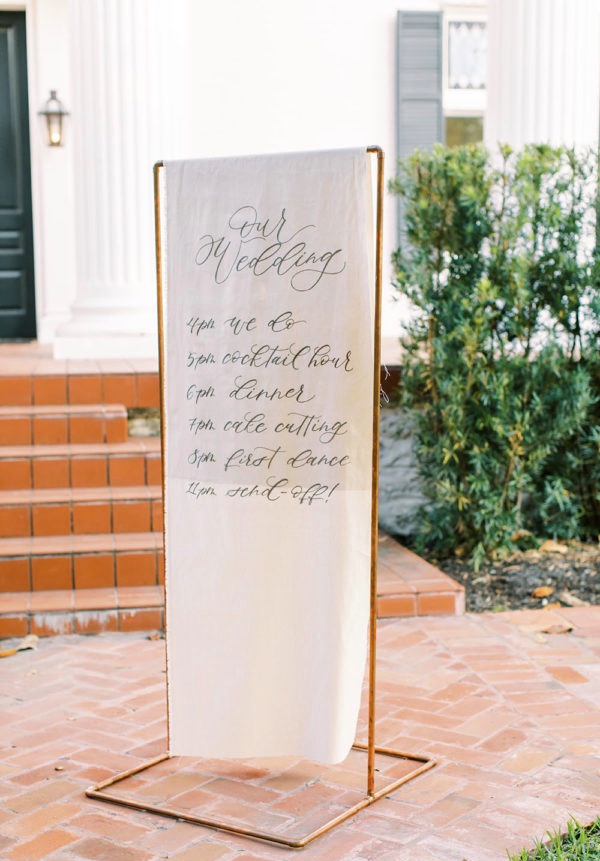 Our
Wedding
4pm we do
5pm cocktail hour
6pm dinner
7pm cake cutting
8pm first dance
11pm send-off!